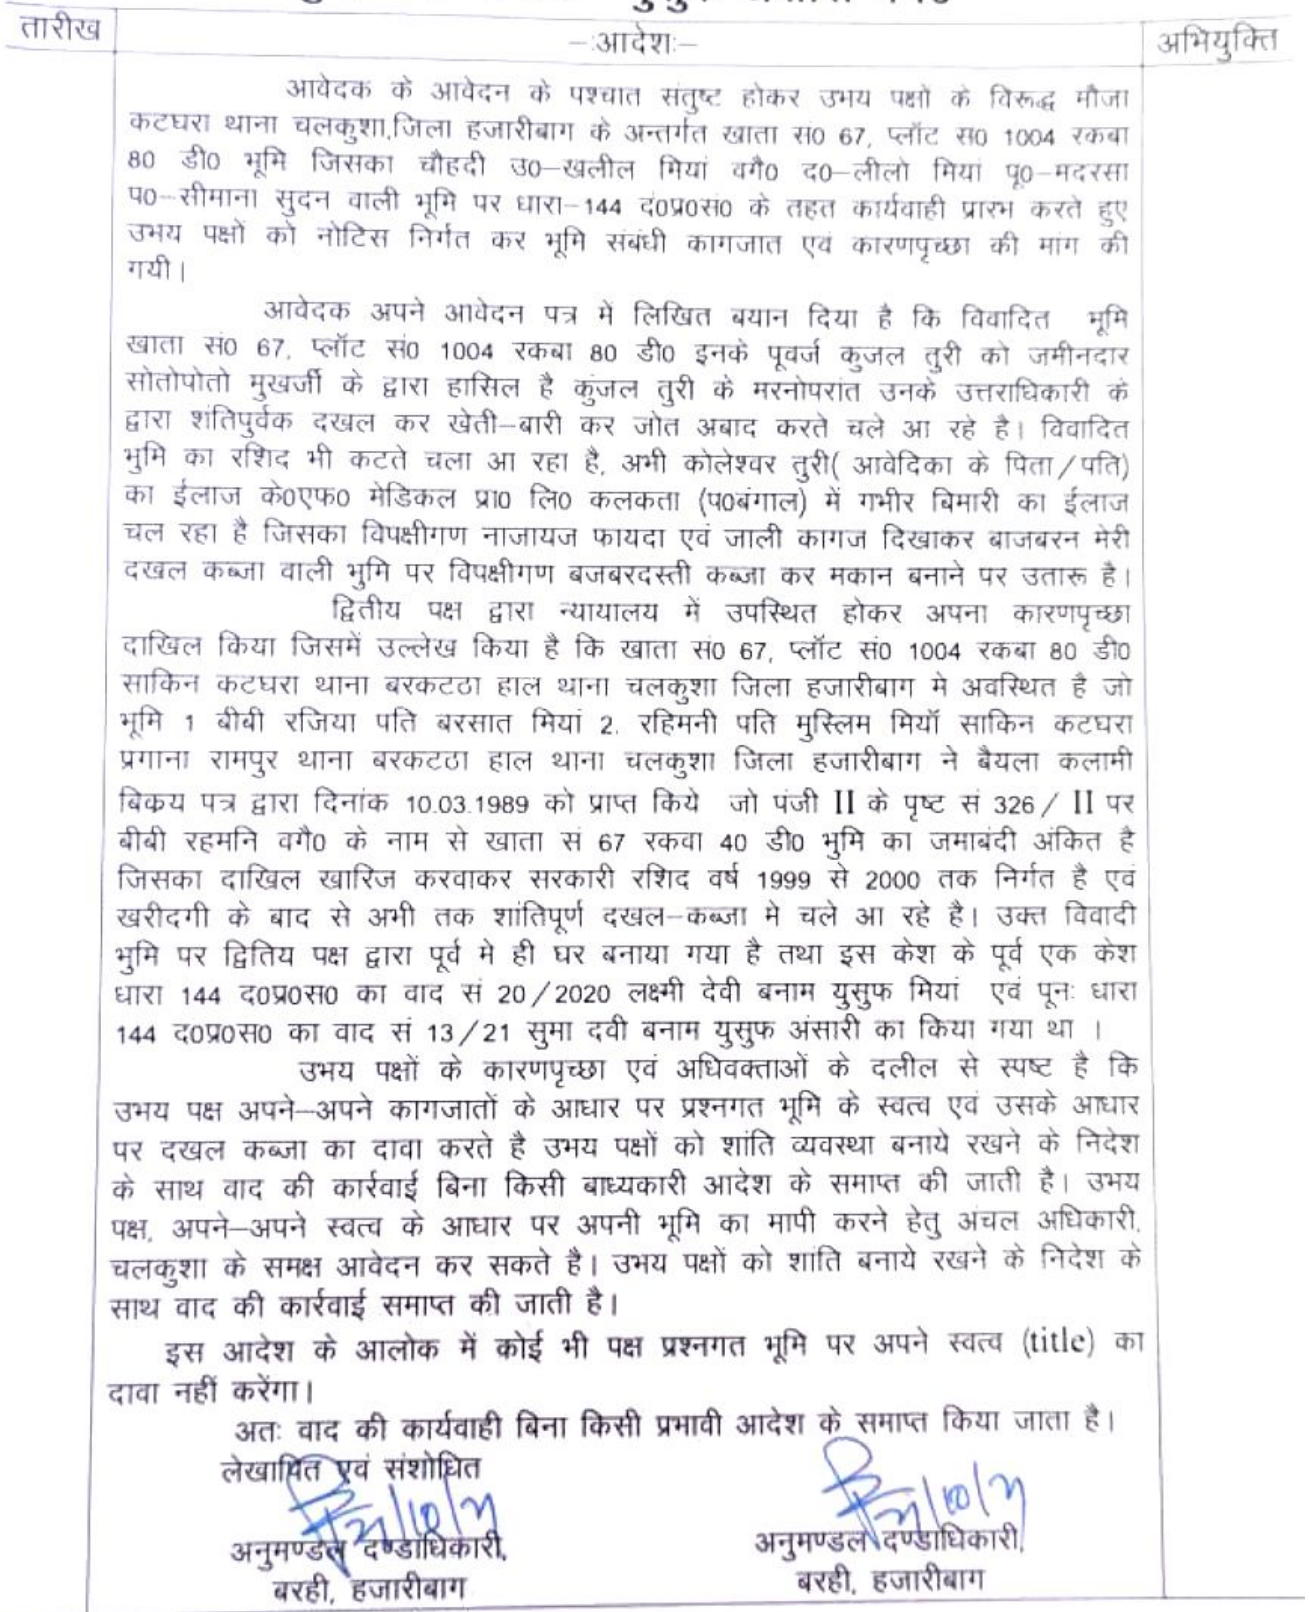 तारीख
-:आदेश:-
अभियुक्ति
आवेदक के आवेदन के पश्चात संतुष्ट होकर उभय पक्षों के विरूद्ध मौजा
कटघरा थाना चलकुशा,जिला हजारीबाग के अन्तर्गत खाता सं0 67, प्लॉट स0 1004 रकबा
80 डी0 भूमि जिसका चौहदी उ0-खलील मियां वगै0 द0-लीलो मियां पू0-मदरसा
प0-सीमाना सुदन वाली भूमि पर धारा-144 द0प्र0सं0 के तहत कार्यवाही प्रारभ करते हुए
उभय पक्षों को नोटिस निर्गत कर भूमि संबंधी कागजात एवं कारणपृच्छा की मांग की
गयी।
आवेदक अपने आवेदन पत्र में लिखित बयान दिया है कि विवादित भूमि
खाता सं0 67, प्लॉट सं0 1004 रकबा 80 डी0 इनके पूवर्ज कुजल तुरी को जमीनदार
सोतोपोतो मुखर्जी के द्वारा हासिल है कुंजल तुरी के मरनोपरांत उनके उत्तराधिकारी के
द्वारा शंतिपुर्वक दखल कर खेती-बारी कर जोत अबाद करते चले आ रहे है। विवादित
भुमि का रशिद भी कटते चला आ रहा है, अभी कोलेश्वर तुरी( आवेदिका के पिता/पति)
का ईलाज के0एफ0 मेडिकल प्रा0 लि0 कलकता (प0बंगाल) में गभीर बिमारी का ईलाज
चल रहा है जिसका विपक्षीगण नाजायज फायदा एवं जाली कागज दिखाकर बाजबरन मेरी
दखल कब्जा वाली भुमि पर विपक्षीगण बजबरदस्ती कब्जा कर मकान बनाने पर उतारू है।
द्वितीय पक्ष द्वारा न्यायालय में उपस्थित होकर अपना कारणपृच्छा
दाखिल किया जिसमें उल्लेख किया है कि खाता सं0 67, प्लॉट सं0 1004 रकबा 80 डी0
साकिन कटघरा थाना बरकटठा हाल थाना चलकुशा जिला हजारीबाग मे अवस्थित है जो
भूमि 1 बीबी रजिया पति बरसात मियां 2. रहिमनी पति मुस्लिम मियॉ साकिन कटघरा
प्रगाना रामपुर थाना बरकटठा हाल थाना चलकुशा जिला हजारीबाग ने बैयला कलामी
बिक्रय पत्र द्वारा दिनांक 10.03.1989 को प्राप्त किये जो पंजी II के पृष्ट सं 326/ II पर
बीबी रहमनि वगै0 के नाम से खाता सं 67 रकवा 40 डी0 भुमि का जमाबंदी अंकित है
जिसका दाखिल खारिज करवाकर सरकारी रशिद वर्ष 1999 से 2000 तक निर्गत है एवं
खरीदगी के बाद से अभी तक शांतिपूर्ण दखल-कब्जा मे चले आ रहे है। उक्त विवादी
भुमि पर द्वितिय पक्ष द्वारा पूर्व मे ही घर बनाया गया है तथा इस केश के पूर्व एक केश
धारा 144 द0प्र0स0 का वाद सं 20/2020 लक्ष्मी देवी बनाम युसुफ मियां एवं पूनः धारा
144 द0प्र0स0 का वाद सं 13/21 सुमा दवी बनाम युसुफ अंसारी का किया गया था ।
उभय पक्षों के कारणपृच्छा एवं अधिवक्ताओं के दलील से स्पष्ट है कि
उभय पक्ष अपने-अपने कागजातों के आधार पर प्रश्नगत भूमि के स्वत्व एवं उसके आधार
पर दखल कब्जा का दावा करते है उभय पक्षों को शांति व्यवस्था बनाये रखने के निदेश
के साथ वाद की कार्रवाई बिना किसी बाध्यकारी आदेश के समाप्त की जाती है। उभय
पक्ष, अपने-अपने स्वत्व के आधार पर अपनी भूमि का मापी करने हेतु अंचल अधिकारी,
चलकुशा के समक्ष आवेदन कर सकते है। उभय पक्षों को शांति बनाये रखने के निदेश के
साथ वाद की कार्रवाई समाप्त की जाती है।
इस आदेश के आलोक में कोई भी पक्ष प्रश्नगत भूमि पर अपने स्वत्व (title) का
दावा नहीं करेंगा।
अतः वाद की कार्यवाही बिना किसी प्रभावी आदेश के समाप्त किया जाता है।
लेखापित एवं संशोधित
अनुमण्डल दण्डाधिकारी,
बरही, हजारीबाग
अनुमण्डल दण्डाधिकारी,
बरही, हजारीबाग